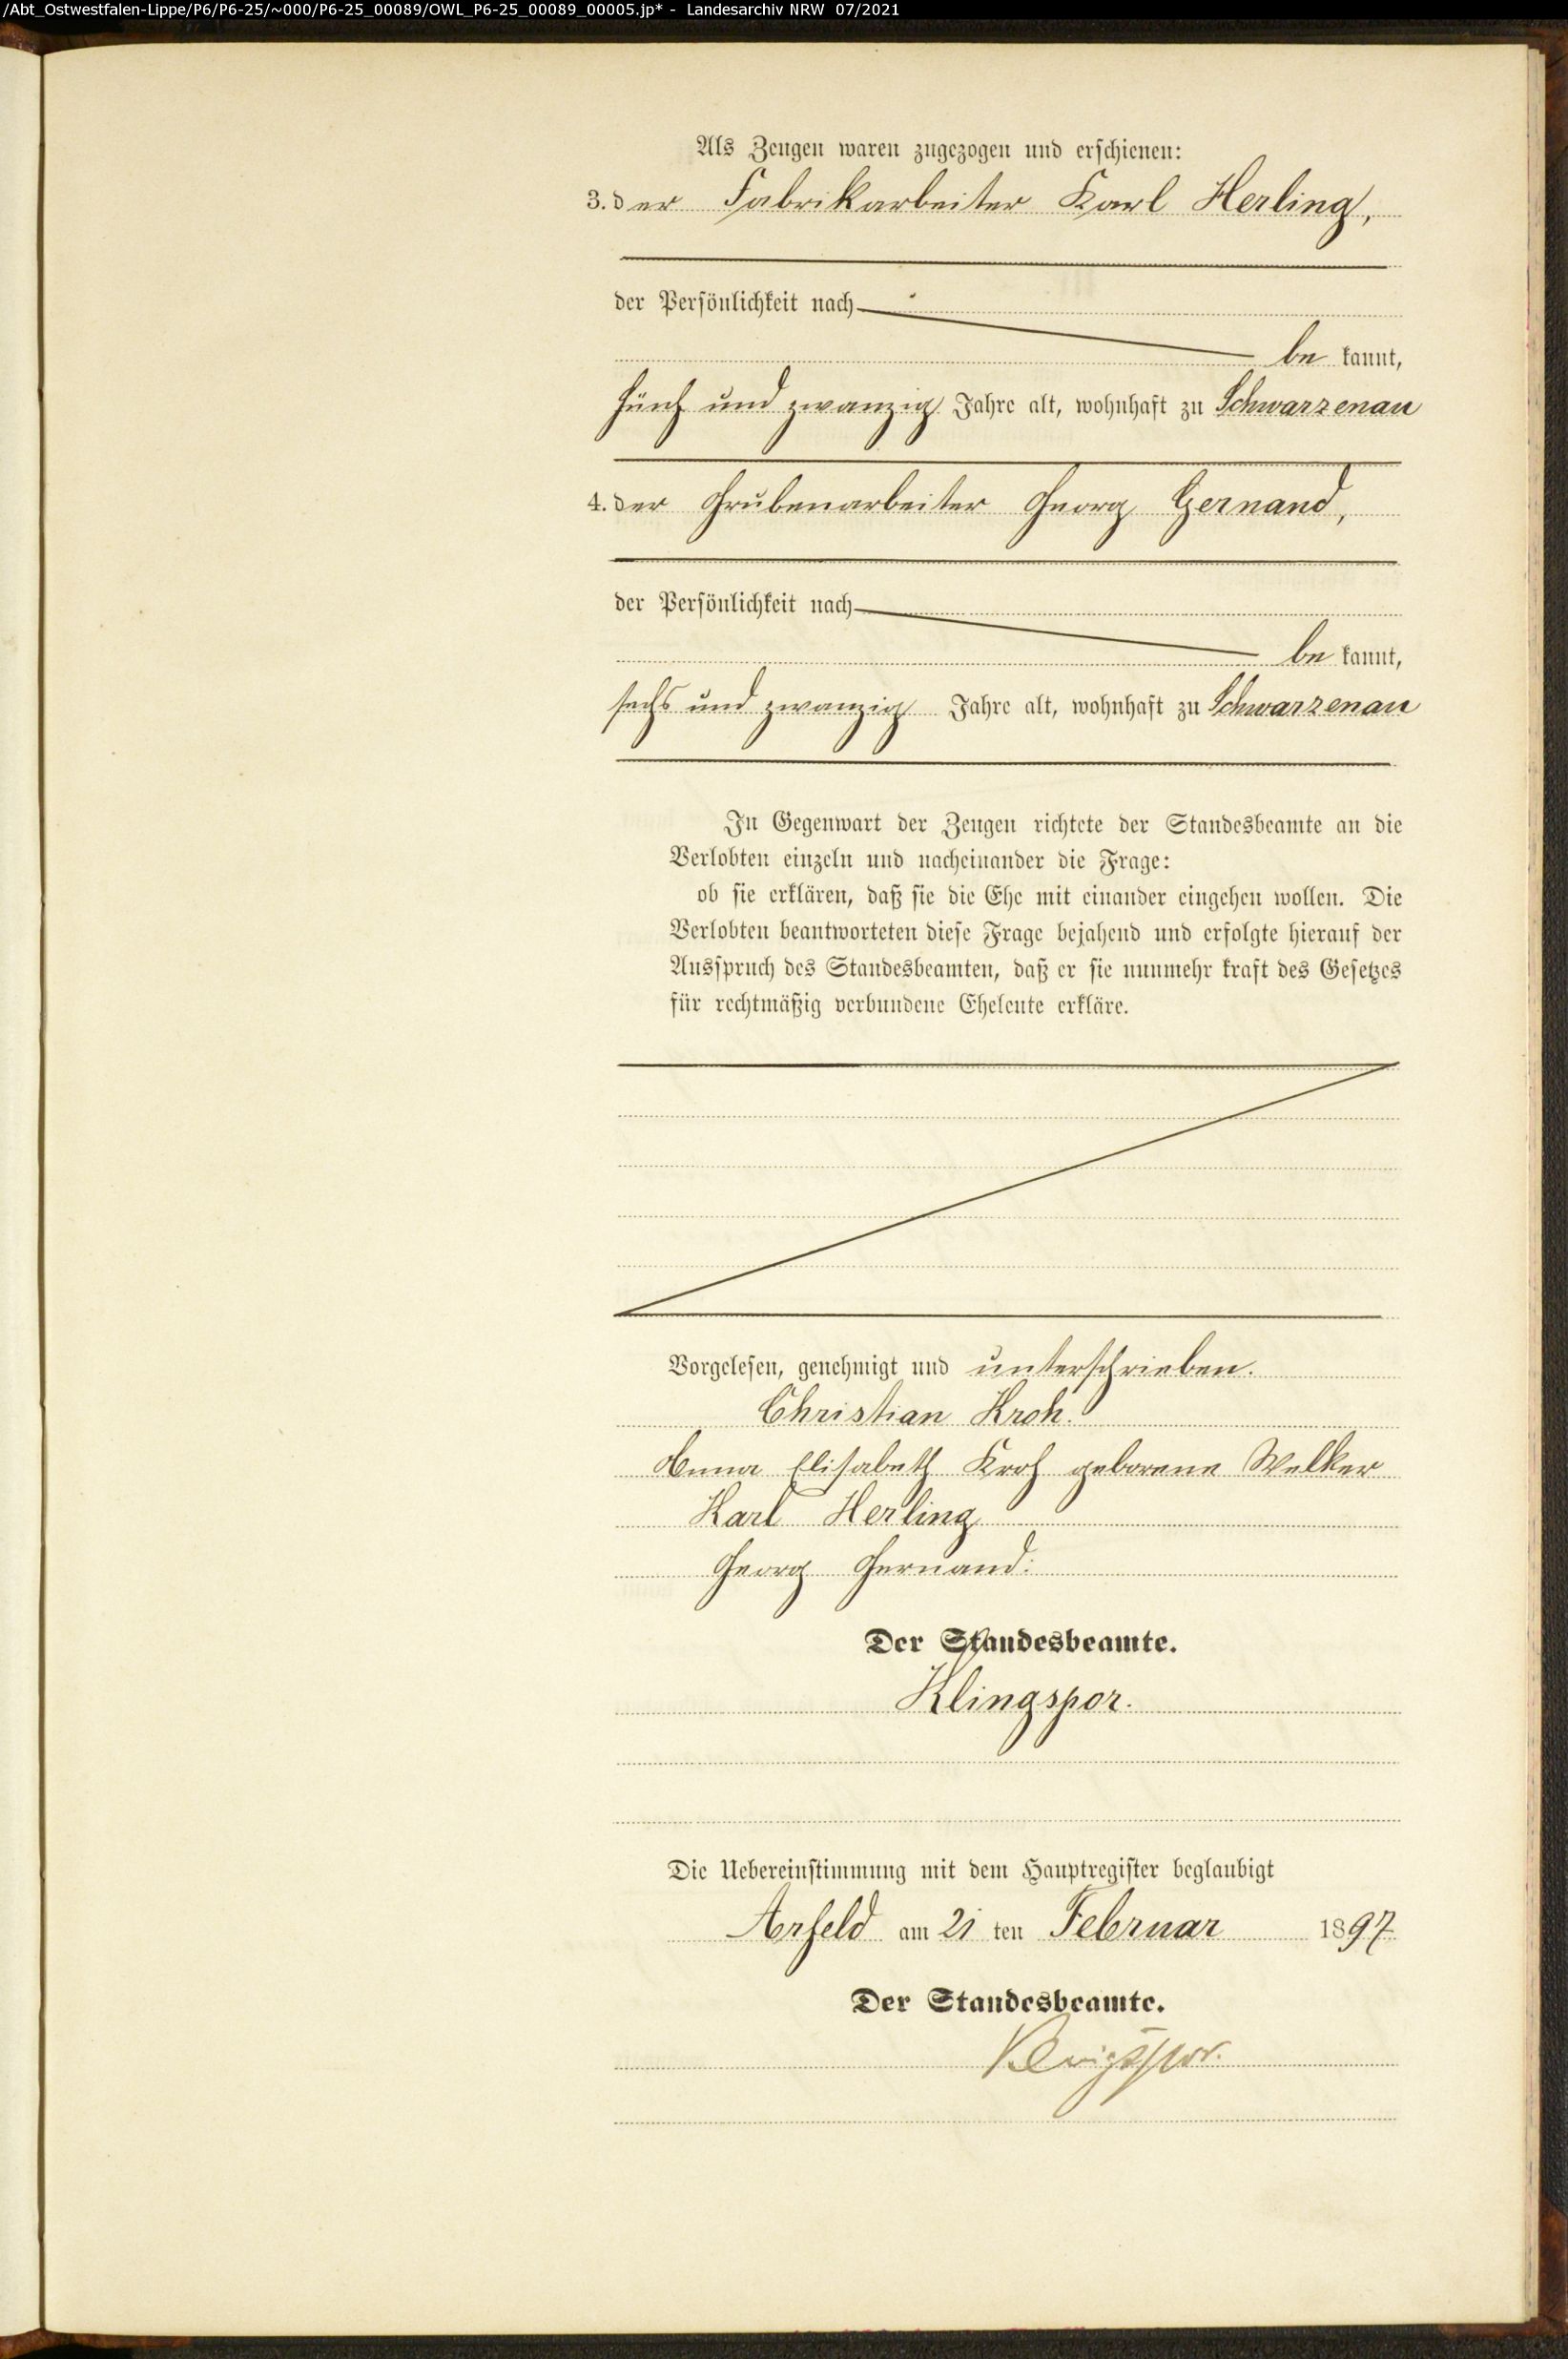 /Abt_Ostwestfalen-Lippe/P6/P6-25/~000/P6-25_00089/OWL_P6-25_00089_00005.jp* - Landesarchiv NRW 07/2021
Als Zeugen waren zugezogen und erschienen:
3. der Fabrikarbeiter Karl Herling,
der Persönlichkeit nach
be kannt,
fünf und zwanzig Jahre alt, wohnhaft zu Schwarzenau
4. der Grubenarbeiter Georg Gernand,
der Persönlichkeit nach
be kannt,
sechs und zwanzig Jahre alt, wohnhaft zu Schwarzenau
In Gegenwart der Zeugen richtete der Standesbeamte an die
Verlobten einzeln und nacheinander die Frage:
ob sie erklären, daß sie die Ehe mit einander eingehen wollen. Die
Verlobten beantworteten diese Frage bejahend und erfolgte hierauf der
Ausspruch des Standesbeamten, daß er sie nunmehr kraft des Gesetzes
für rechtmäßig verbundene Eheleute erkläre.
Vorgelesen, genehmigt und unterschrieben.
Christian Kroh.
Anna Elisabeth Kroh geborene Welker
Karl Herling
Georg Gernand.
Der Standesbeamte.
Klingspor.
Die Uebereinstimmung mit dem Hauptregister beglaubigt
Arfeld am 21 ten Februar 1897
Der Standesbeamte.
Klingspor.